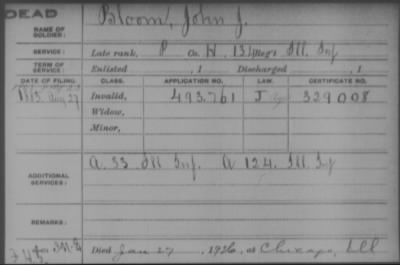 DEAD
NAME OF SOLDIER: Bloom, John J.
SERVICE: Late rank, P Co. H, 134 Reg't Ill. Inf
TERM OF SERVICE: Enlisted , 1 Discharged , 1
DATE OF FILING. CLASS. APPLICATION NO. LAW. CERTIFICATE NO.
Aug 27 Invalid, 493.761 J 329008
Widow,
Minor,
ADDITIONAL SERVICES: A. 33 Ill Inf. A 124. Ill Inf
REMARKS:
Died Jan 27 , 1926, at Chicago, Ill